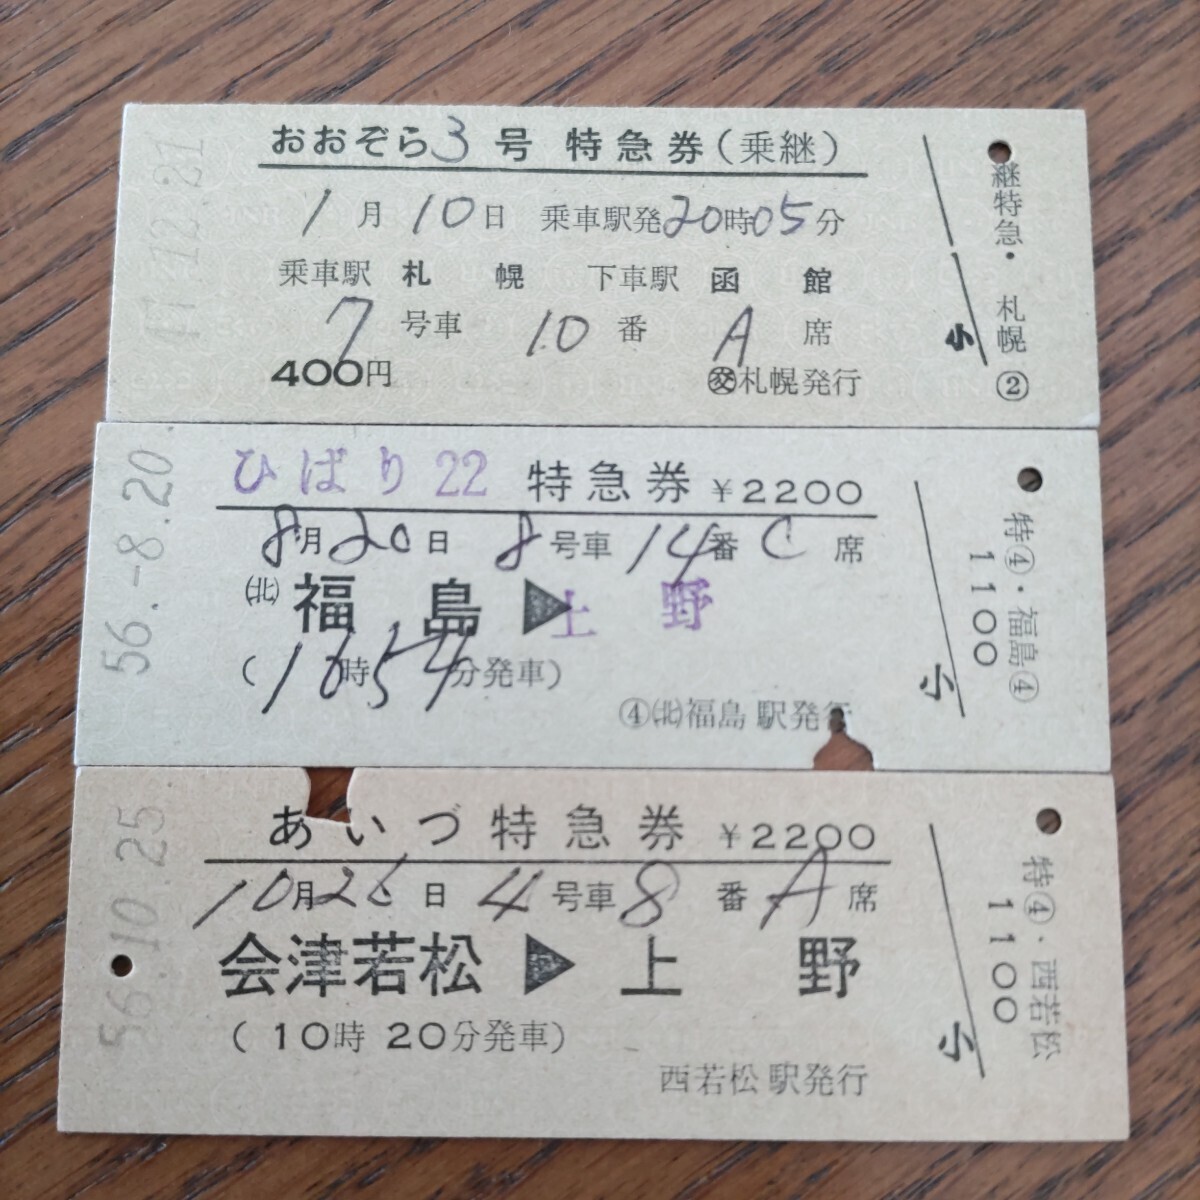 おおぞら3号 特急券(乗継)
1月10日 乗車駅発20時05分
乗車駅 札幌 下車駅 函館
7号車 10番 A席
400円
㊋札幌発行
継特急・札幌②
小
ひばり22 特急券 ¥2200
8月20日 8号車14番C席
㈰福島▶上野
(16時54分発車)
④㈰福島駅発行
56.-8.20
特④・福島④
1100
小
あいづ特急券 ¥2200
10月26日 4号車8番A席
会津若松▶上野
(10時20分発車)
西若松駅発行
56.10.25
特④・西若松
1100
小